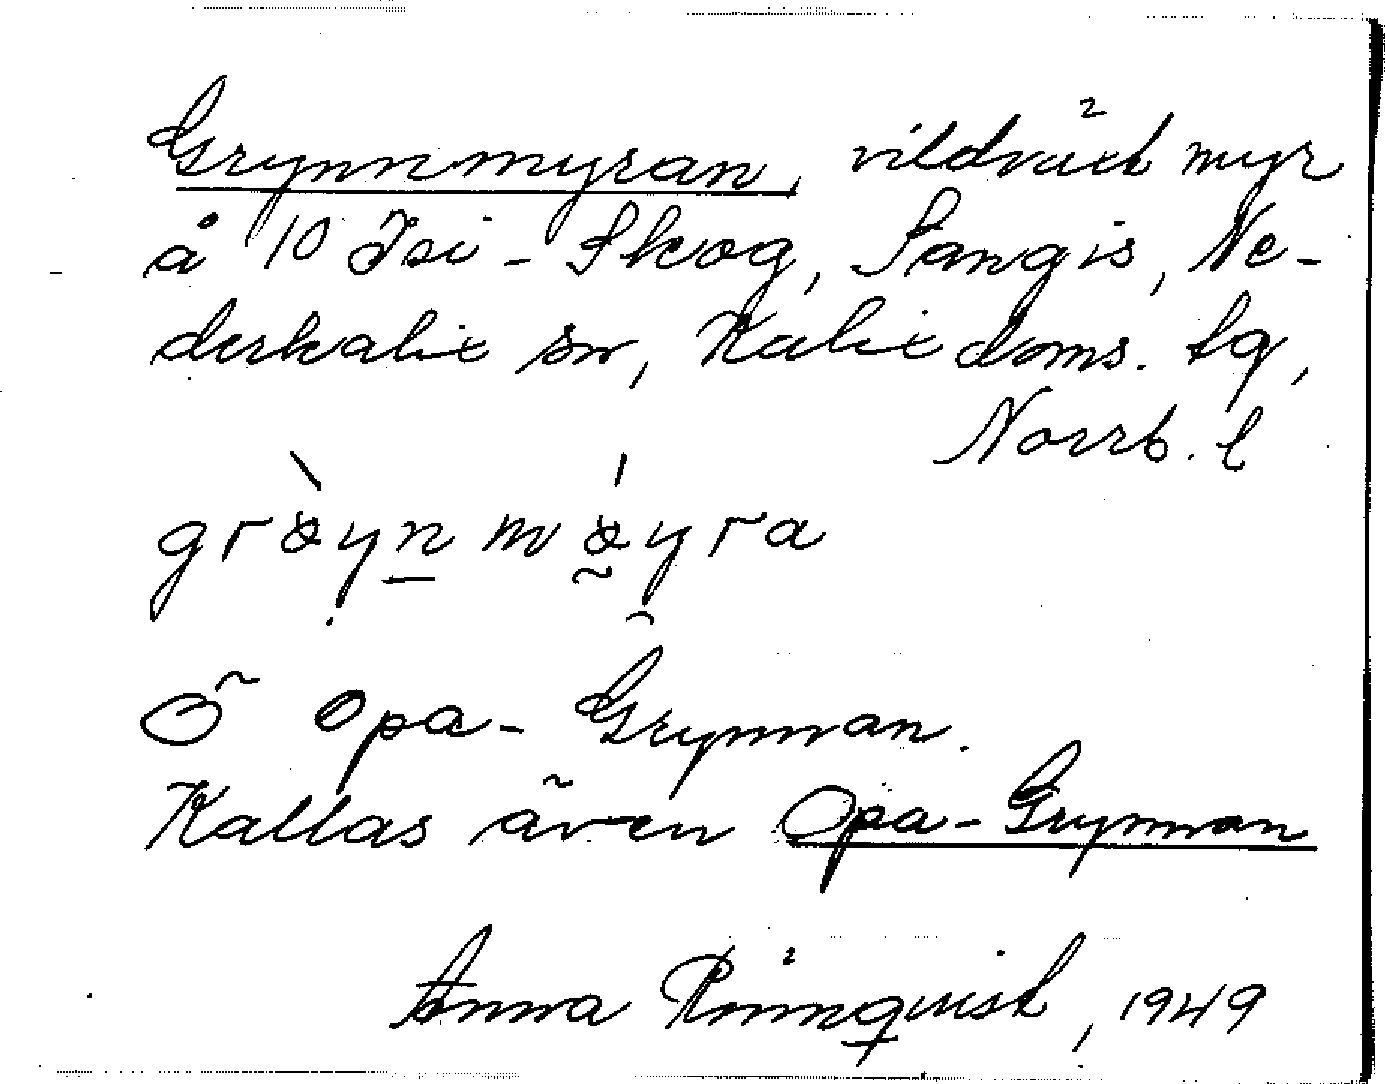 Grynnmyran, vildväxt myr
å 10 Isi-Skog, Sangis, Ne-
derkalix sn, Kalix doms. lg,
Norrb. l
Ö Opa-Grynnan.
Kallas även Opa-Grynnan
Anna Rönnqvist, 1949